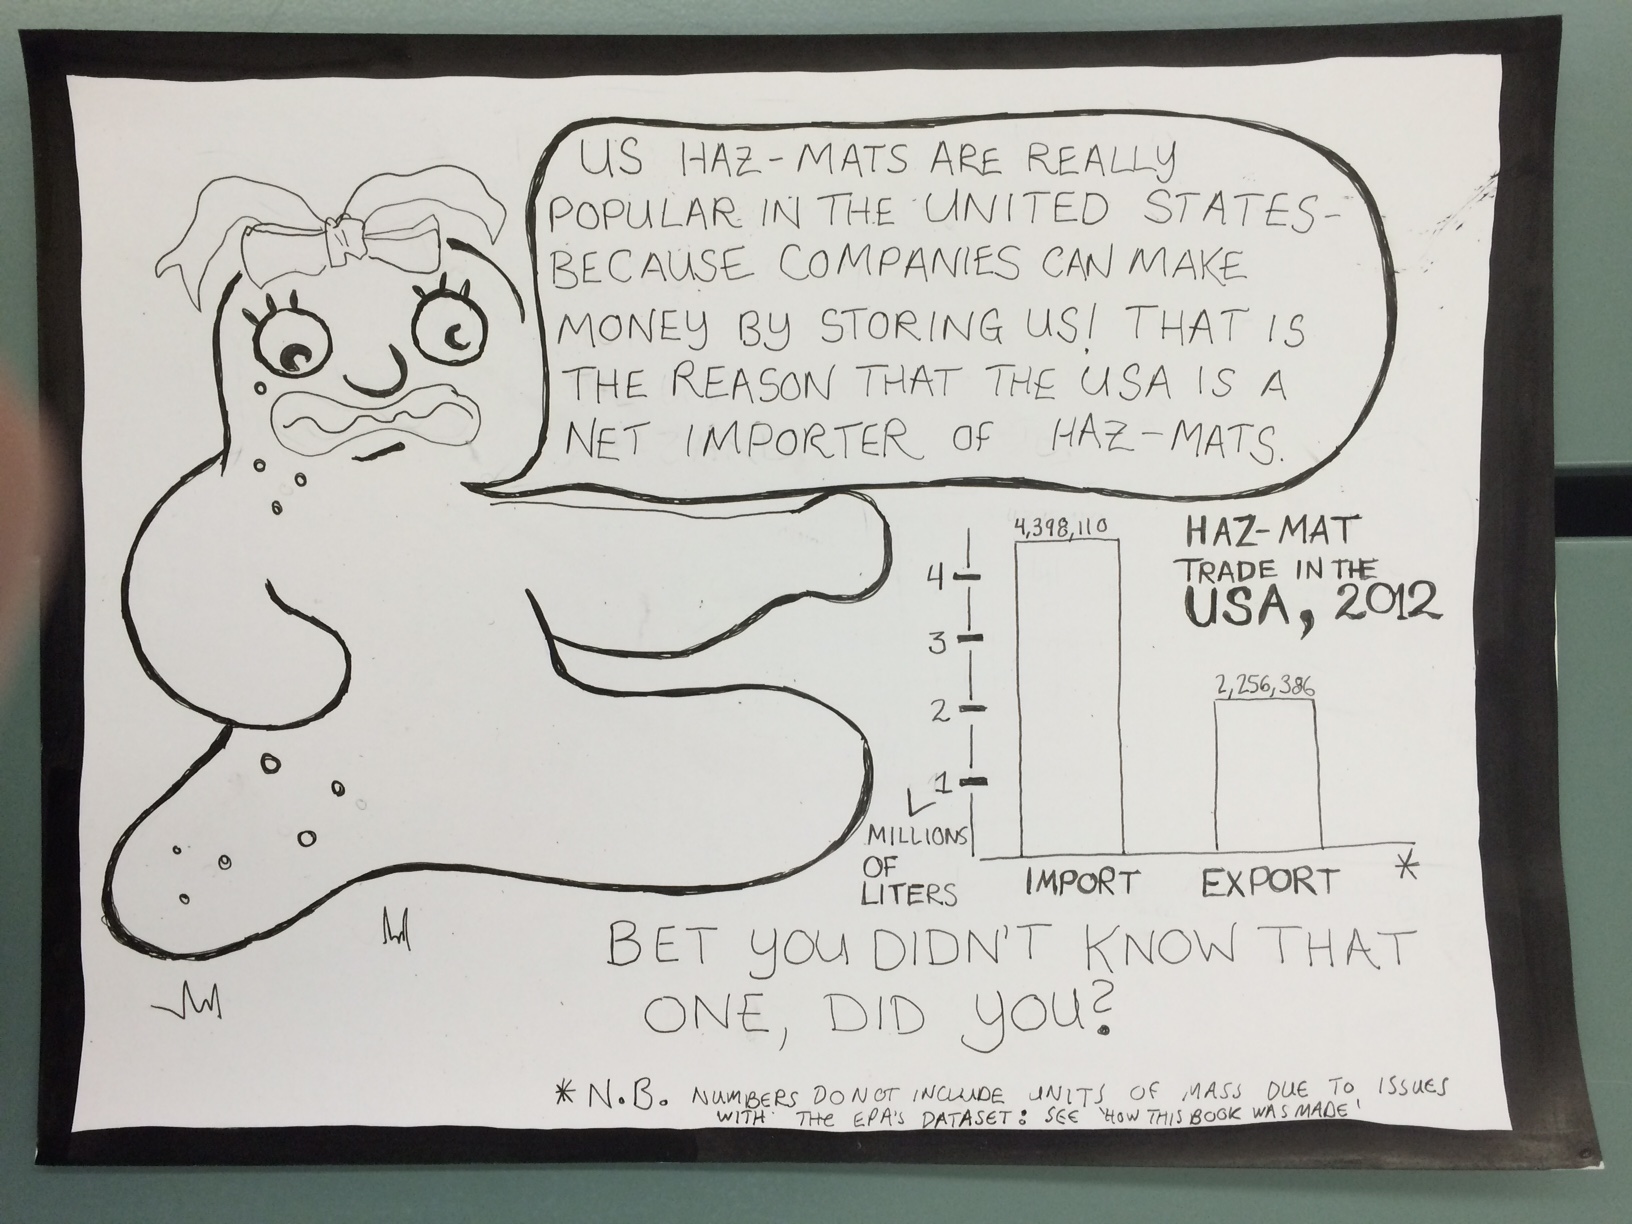 US HAZ-MATS ARE REALLY
POPULAR IN THE UNITED STATES-
BECAUSE COMPANIES CAN MAKE
MONEY BY STORING US! THAT IS
THE REASON THAT THE USA IS A
NET IMPORTER OF HAZ-MATS.
HAZ-MAT
TRADE IN THE
USA, 2012
4,398,110
2,256,386
4
3
2
1
MILLIONS
OF
LITERS
IMPORT
EXPORT
*
BET YOU DIDN'T KNOW THAT
ONE, DID YOU?
* N.B. NUMBERS DO NOT INCLUDE UNITS OF MASS DUE TO ISSUES
WITH THE EPA'S DATASET: SEE 'HOW THIS BOOK WAS MADE'